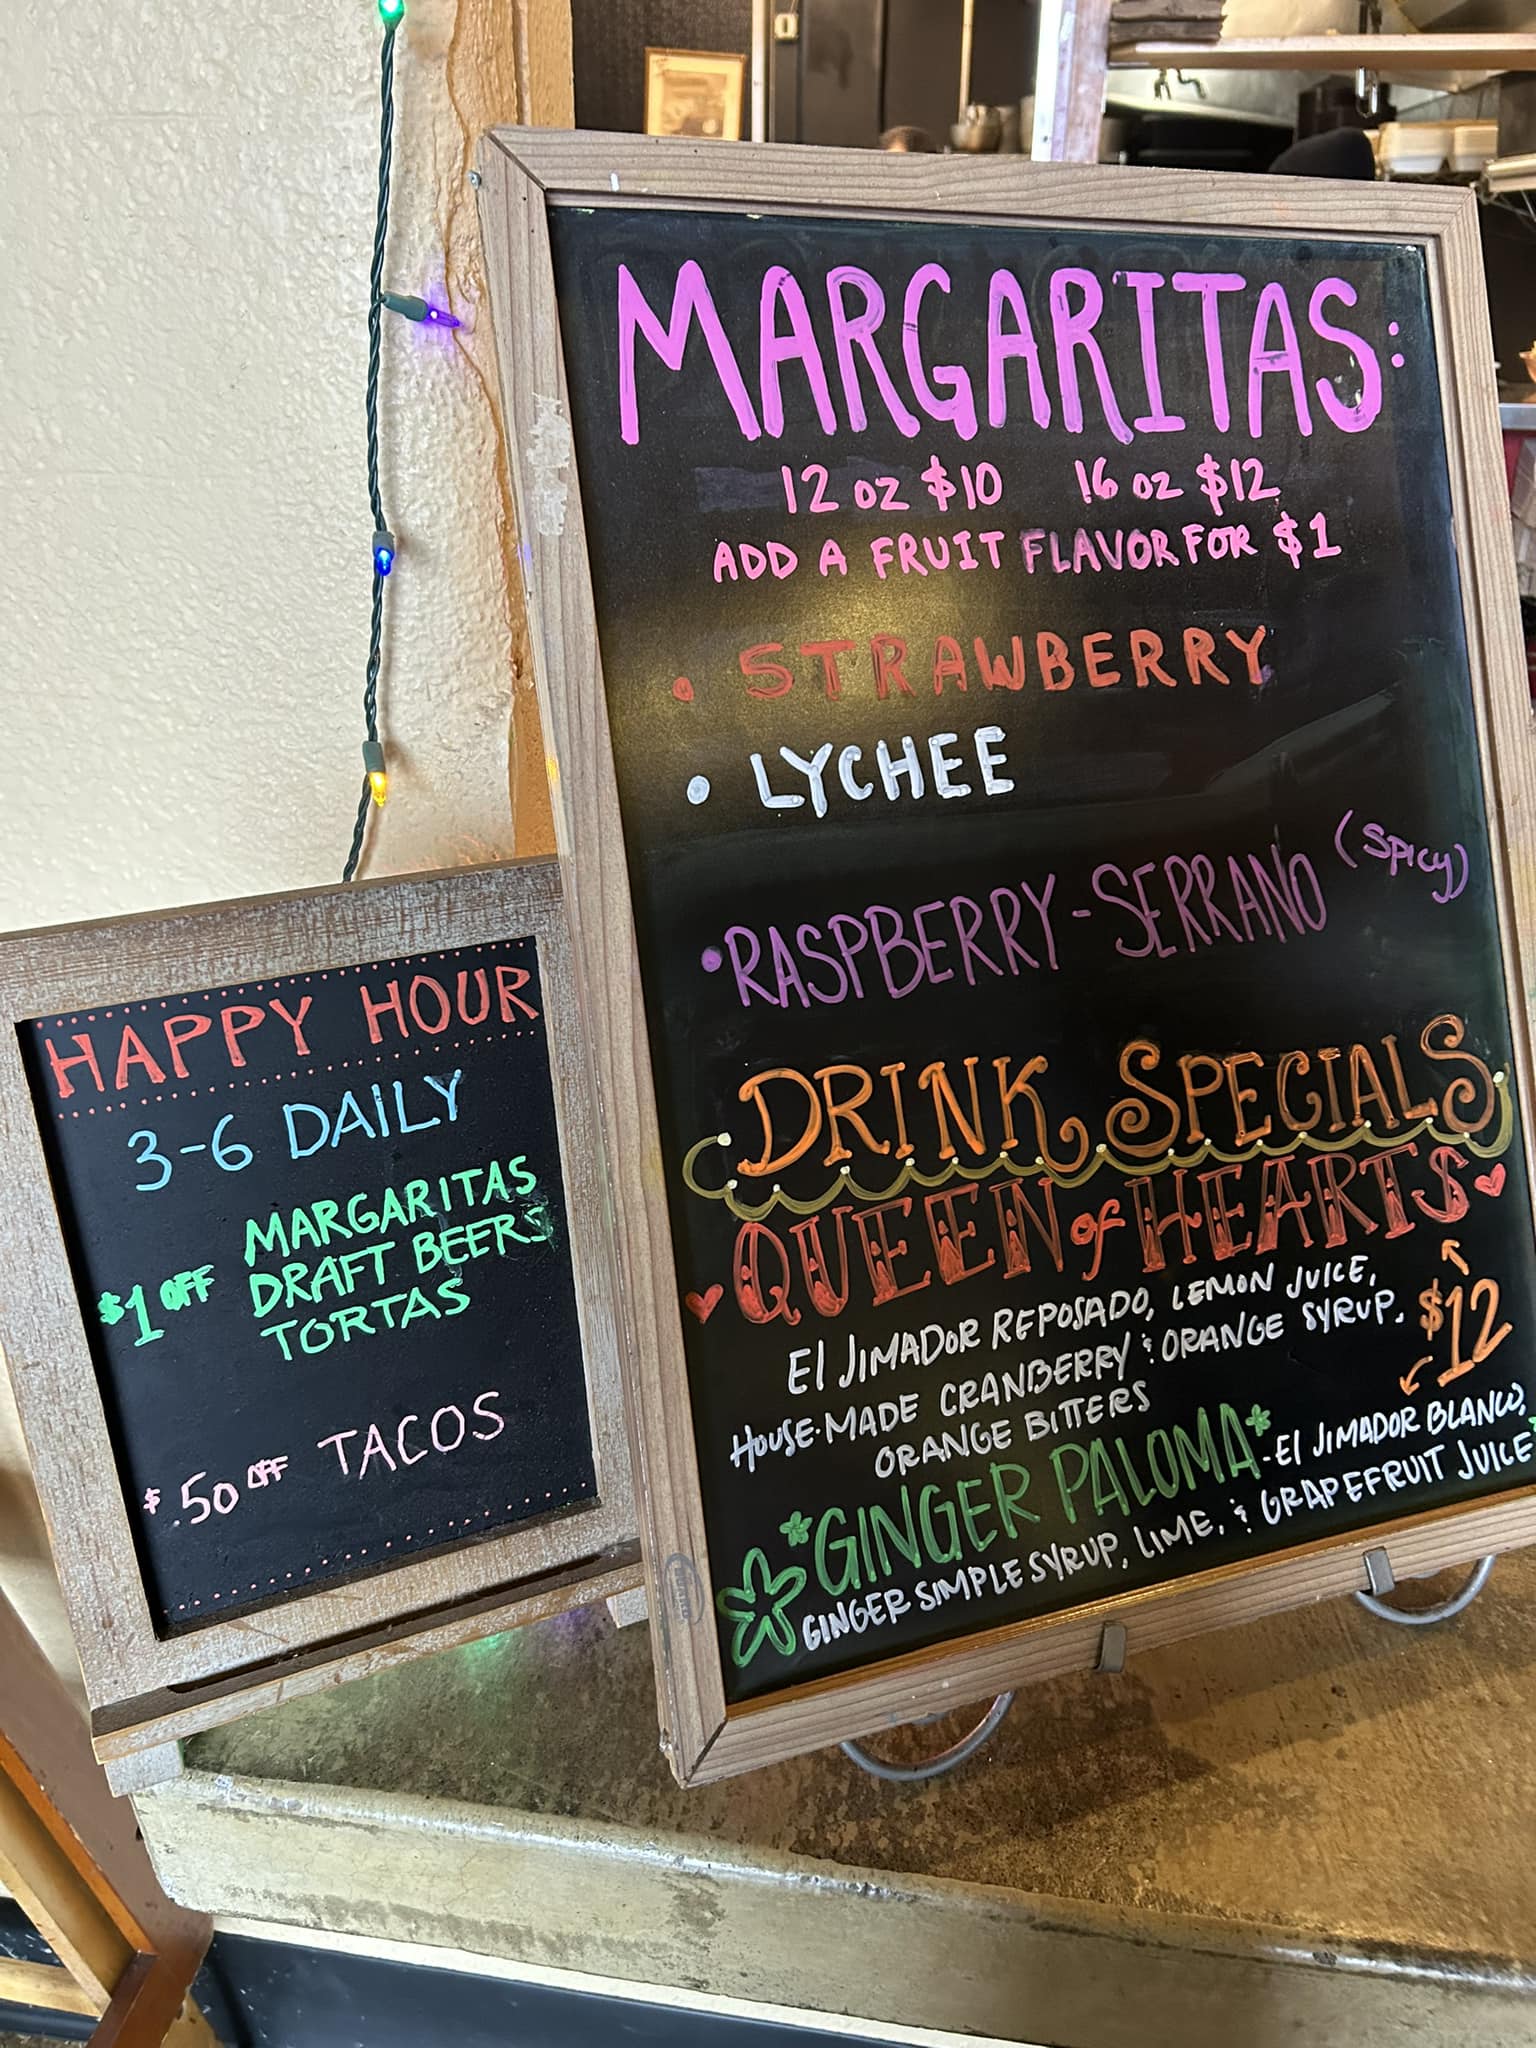 HAPPY HOUR
3-6 DAILY
$1 OFF MARGARITAS
DRAFT BEERS
TORTAS
$.50 OFF TACOS
MARGARITAS:
12 oz $10 16 oz $12
ADD A FRUIT FLAVOR FOR $1
• STRAWBERRY
• LYCHEE
• RASPBERRY-SERRANO (Spicy)
DRINK SPECIALS
QUEEN of HEARTS
El JIMADOR REPOSADO, LEMON JUICE,
HOUSE-MADE CRANBERRY & ORANGE SYRUP,
ORANGE BITTERS
$12
*GINGER PALOMA* - El JIMADOR BLANCO,
GINGER SIMPLE SYRUP, LIME, & GRAPEFRUIT JUICE